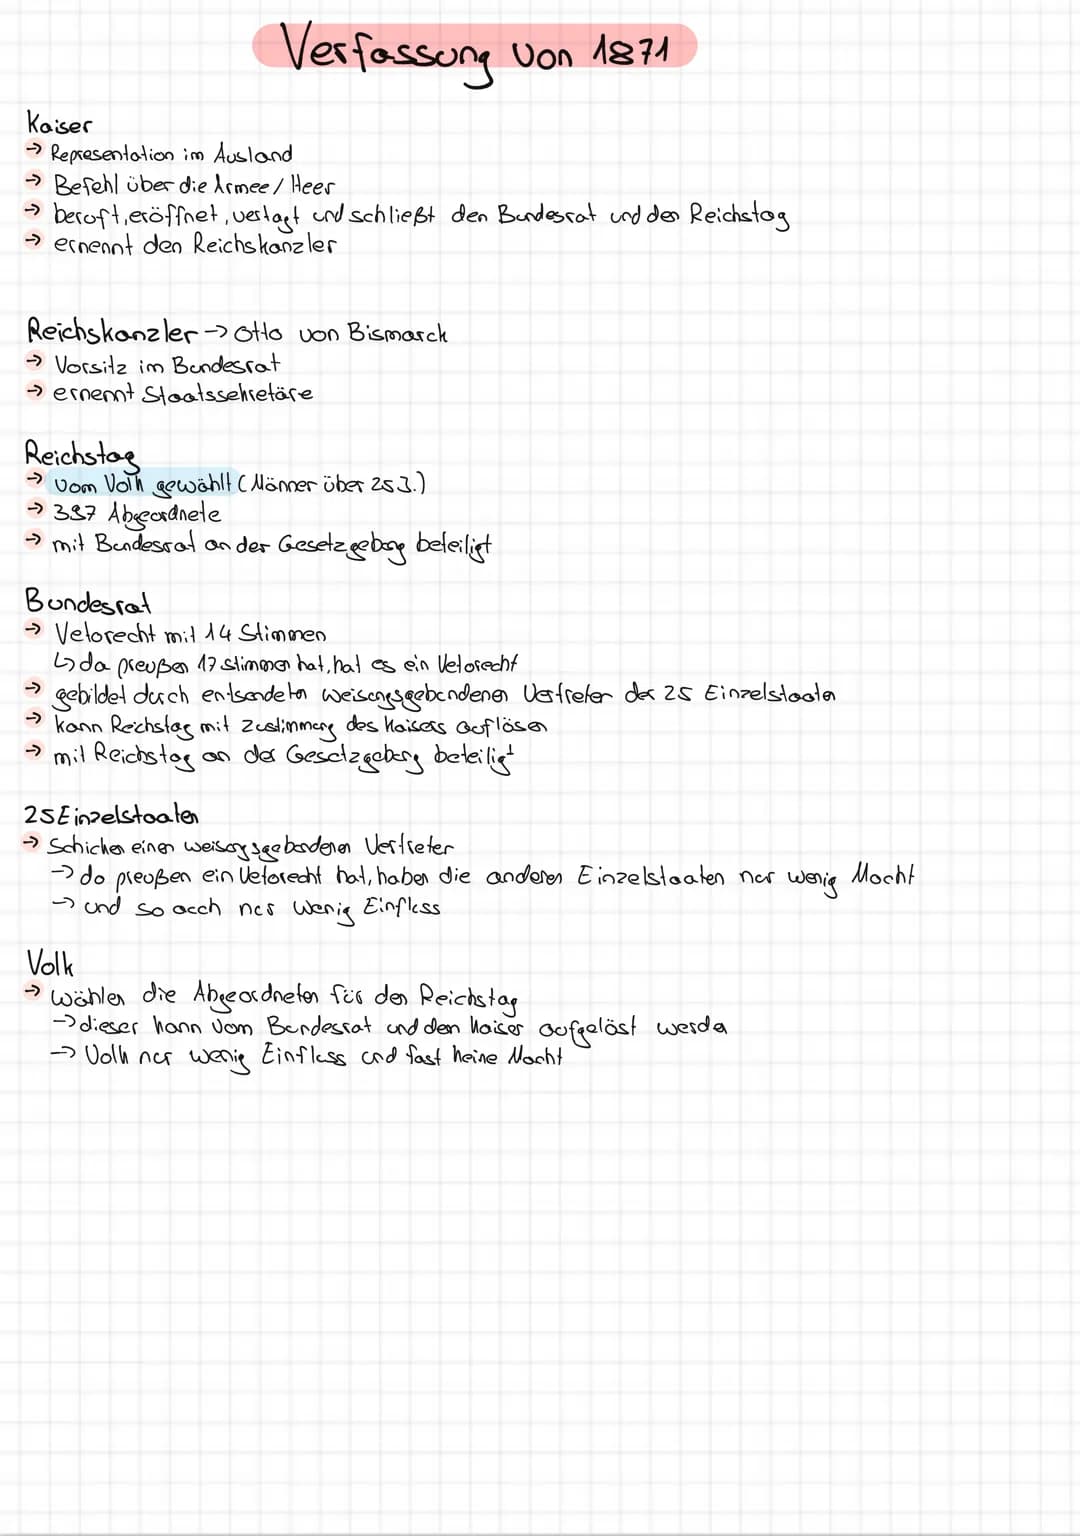 Verfassung von 1871
Kaiser
→ Representation im Ausland
→ Befehl über die Armee / Heer
→ beruft, eröffnet, vertagt und schließt den Bundesrat und den Reichstag
→ ernennt den Reichskanzler
Reichskanzler → Otto von Bismarck
→ Vorsitz im Bundesrat
→ ernennt Staatssekretäre
Reichstag
→ vom Volk gewählt (Männer über 25 J.)
→ 397 Abgeordnete
→ mit Bundesrat an der Gesetzgebung beteiligt
Bundesrat
→ Vetorecht mit 14 Stimmen
↳ da preußen 17 stimmen hat, hat es ein Vetorecht
→ gebildet durch entsandeten weisungsgebundenen Vertreter der 25 Einzelstaaten
→ kann Reichstag mit Zustimmung des Kaisers auflösen
→ mit Reichstag an der Gesetzgebung beteiligt
25 Einzelstaaten
→ Schicken einen weisungsgebundenen Vertreter
→ da preußen ein Vetorecht hat, haben die anderen Einzelstaaten nur wenig Macht
→ und so auch nur wenig Einfluss
Volk
→ wählen die Abgeordneten für den Reichstag
→ dieser kann vom Bundesrat und dem Kaiser aufgelöst werden
→ Volk nur wenig Einfluss und fast keine Macht